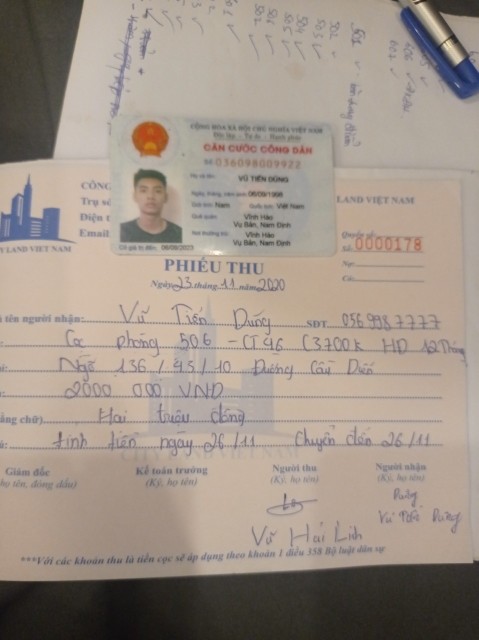 CỘNG HÒA XÃ HỘI CHỦ NGHĨA VIỆT NAM
Độc lập - Tự do - Hạnh phúc
CĂN CƯỚC CÔNG DÂN
Số: 036098009922
Họ và tên:
VŨ TIẾN DŨNG
Ngày, tháng, năm sinh: 06/09/1998
Giới tính: Nam Quốc tịch: Việt Nam
Quê quán: Vĩnh Hào
Vụ Bản, Nam Định
Nơi thường trú: Vĩnh Hào
Vụ Bản, Nam Định
Có giá trị đến: 06/09/2023
CÔNG
Trụ sở
Điện t
Email:
LAND VIỆT NAM
Y LAND VIỆT NAM
Quyển số:
Số: 0000178
Nợ:
Có:
PHIẾU THU
Ngày 23 tháng 11 năm 2020
tên người nhận: Vũ Tiến Dũng SĐT 0569987777
Cọc phòng 506 - CT46 C3700K HD 12 Tháng
Ngõ 136/45/10 Đường Cầu Diễn
2000 000 VND
bằng chữ) Hai triệu đồng
tính tiền ngày 26/11 Chuyển đến 26/11
Giám đốc Kế toán trưởng Người thu Người nhận
họ tên, đóng dấu) (Ký, họ tên) (Ký, họ tên) (Ký, họ tên)
Dũng
Vũ Tiến Dũng
Vũ Hải Linh
***Với các khoản thu là tiền cọc sẽ áp dụng theo khoản 1 điều 358 Bộ luật dân sự